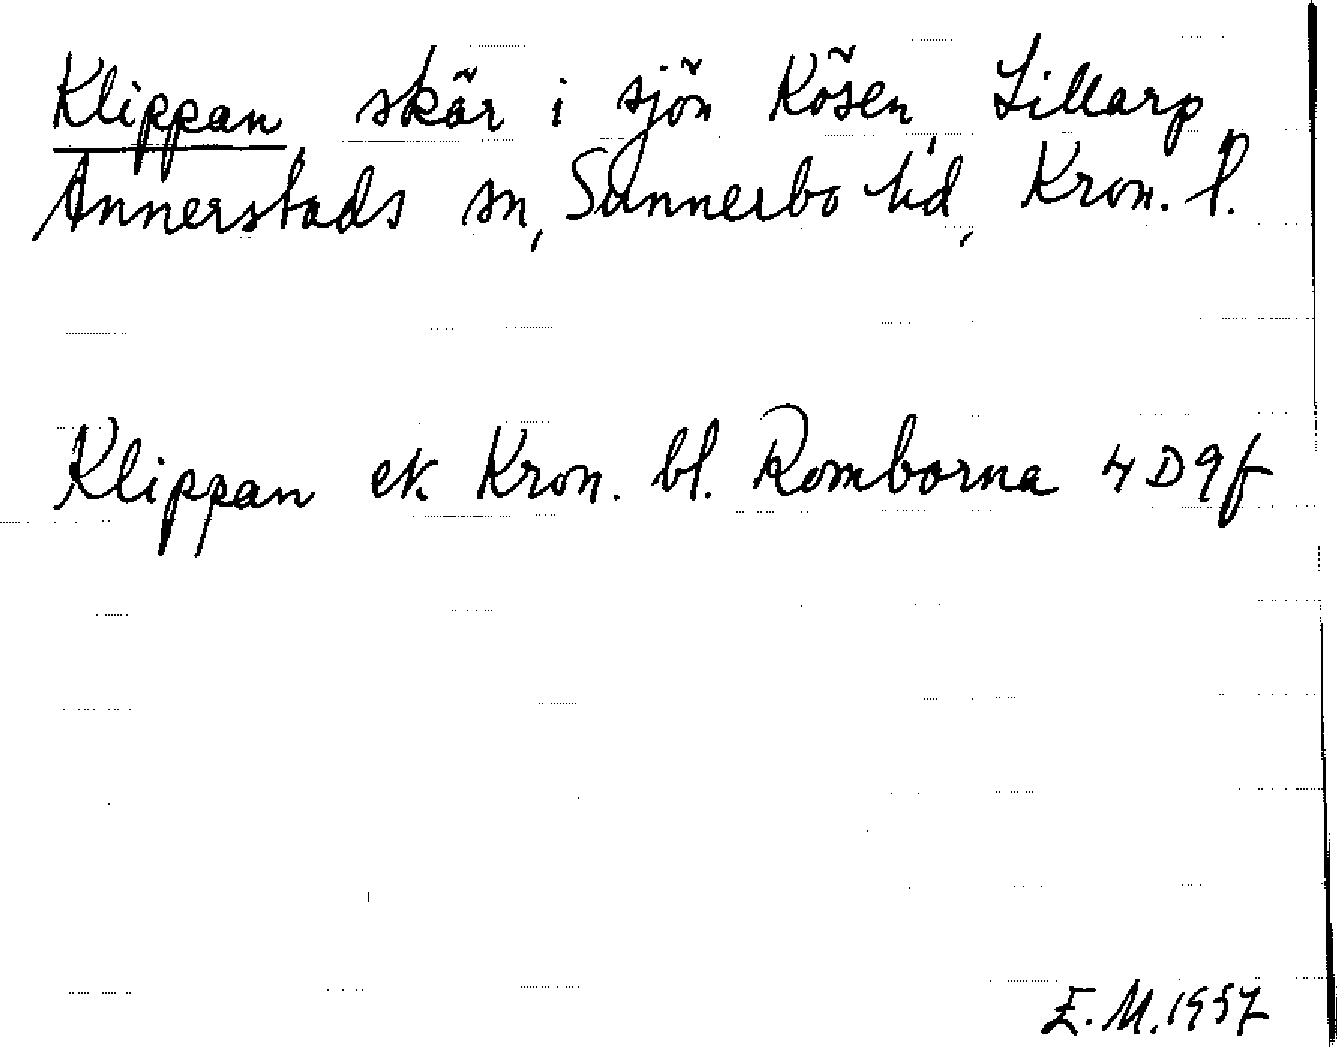 Klippan skär i sjön Kösen, Lillarp
Annerstads sn, Sunnerbo hd, Kron. l.
Klippan ek Kron. bl. Romborna 4D9f
E.M. 1957